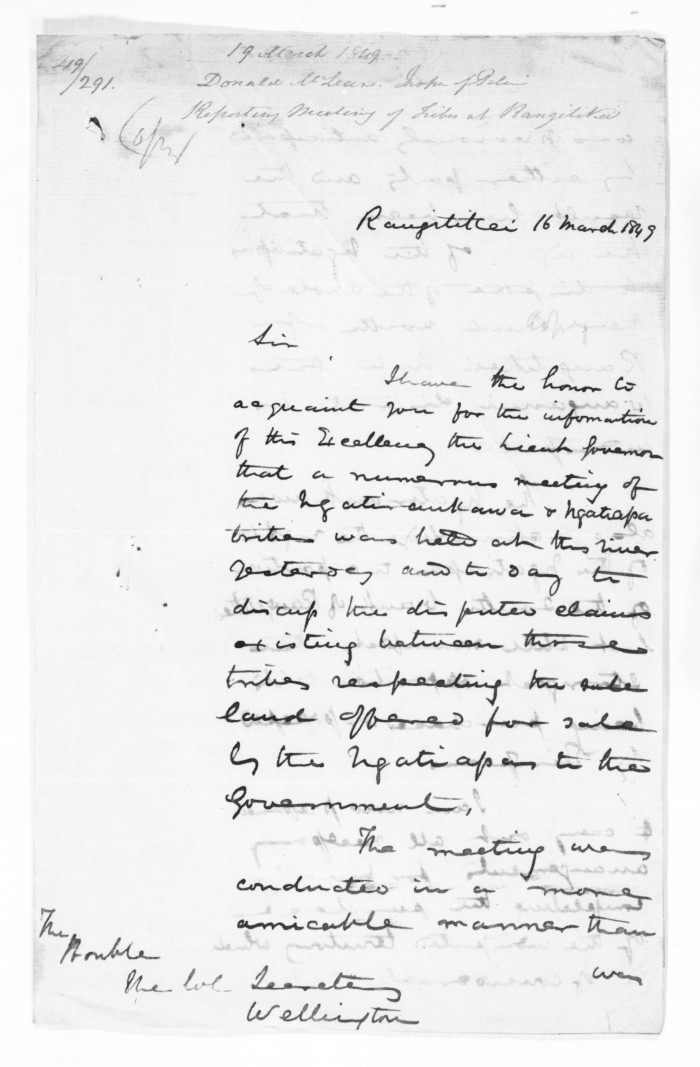 49/291.
19 March 1849
Donald McLean. Inspr of Police
Reporting Meeting of Tribes at Rangitikei
Copy
Rangitikei 16 March 1849
Sir
I have the honor to
acquaint you for the information
of His Excellency the Lieut Governor
that a numerous meeting of
the Ngatiraukawa & Ngatiapa
tribes was held at this river
yesterday and to day to
discuss the disputed claims
existing between these
tribes respecting the sale
land offered for sale
by the Ngatiapas to the
Government,
The meeting was
conducted in a more
amicable manner than
was
The
Honble
The Col. Secretary
Wellington